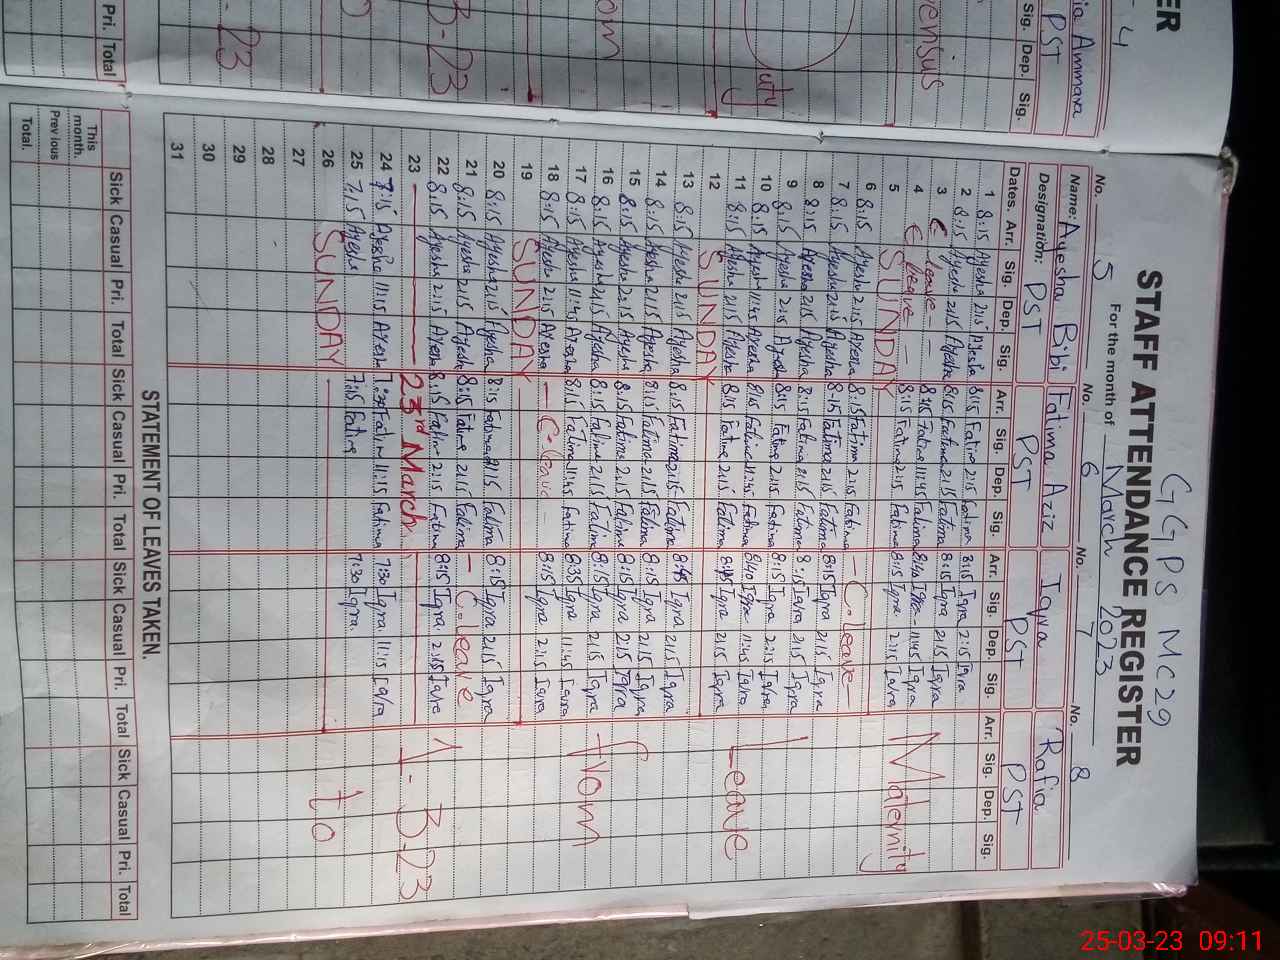 GGPS MC29
STAFF ATTENDANCE REGISTER
For the month of March 2023
No. 5 No. 6 No. 7 No. 8
Name: Ayesha Bibi Fatima Aziz Iqra Rafia
Designation: PST PST PST PST
Dates. Arr. Sig. Dep. Sig. Arr. Sig. Dep. Sig. Arr. Sig. Dep. Sig. Arr. Sig. Dep. Sig.
1 8:15 Ayesha 2:15 Ayesha 8:15 Fatima 2:15 Fatima 8:15 Iqra 2:15 Iqra
2 8:15 Ayesha 2:15 Ayesha 8:15 Fatima 2:15 Fatima 8:15 Iqra 2:15 Iqra
3 C leave 11:45 Fatima 11:45 Iqra
4 C leave 8:15 Fatima 2:15 Fatima 8:15 Iqra 2:15 Iqra Maternity
5 SUNDAY
6 8:15 Ayesha 2:15 Ayesha 8:15 Fatima 2:15 Fatima - C. leave -
7 8:15 Ayesha 2:15 Ayesha 8:15 Fatima 2:15 Fatima 8:15 Iqra 2:15 Iqra
8 8:15 Ayesha 2:15 Ayesha 8:15 Fatima 2:15 Fatima 8:15 Iqra 2:15 Iqra
9 8:15 Ayesha 2:15 Ayesha 8:15 Fatima 2:15 Fatima 8:15 Iqra 2:15 Iqra
10 8:15 Ayesha 11:45 Ayesha 8:15 Fatima 11:45 Fatima 8:40 Iqra 11:45 Iqra Leave
11 8:15 Ayesha 2:15 Ayesha 8:15 Fatima 2:15 Fatima Iqra 2:15 Iqra
12 SUNDAY
13 8:15 Ayesha 2:15 Ayesha 8:15 Fatima 2:15 Fatima Iqra 2:15 Iqra
14 8:15 Ayesha 2:15 Ayesha 8:15 Fatima 2:15 Fatima 8:15 Iqra 2:15 Iqra
15 8:15 Ayesha 2:15 Ayesha 8:15 Fatima 2:15 Fatima 8:15 Iqra 2:15 Iqra
16 8:15 Ayesha 2:15 Ayesha 8:15 Fatima 2:15 Fatima 8:15 Iqra 2:15 Iqra from
17 8:15 Ayesha 11:45 Ayesha 8:15 Fatima 11:45 Fatima 8:35 Iqra 11:45 Iqra
18 8:15 Ayesha 2:15 Ayesha - C. leave - 8:15 Iqra 2:15 Iqra
19 SUNDAY
20 8:15 Ayesha 2:15 Ayesha 8:15 Fatima 2:15 Fatima 8:15 Iqra 2:15 Iqra
21 8:15 Ayesha 2:15 Ayesha 8:15 Fatima 2:15 Fatima - C. leave
22 8:15 Ayesha 2:15 Ayesha 8:15 Fatima 2:15 Fatima 8:15 Iqra 2:15 Iqra
23 23rd March 1-3-23
24 7:15 Ayesha 11:15 Ayesha 7:30 Fatima 11:15 Fatima 7:30 Iqra 11:15 Iqra
25 7:15 Ayesha 7:15 Fatima 7:30 Iqra
26 SUNDAY to
27
28
29
30
31
STATEMENT OF LEAVES TAKEN.
Sick Casual Pri. Total Sick Casual Pri. Total Sick Casual Pri. Total Sick Casual Pri. Total
This month.
Previous
Total.
ER
4
Ammara
PST
Sig. Dep. Sig.
ensus
uty
om
3-23
23
Pri. Total
25-03-23 09:11